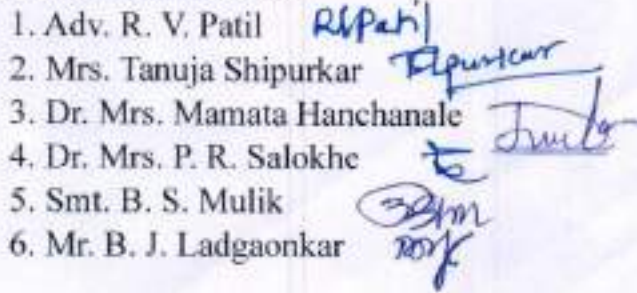 1. Adv. R. V. Patil RVPatil
2. Mrs. Tanuja Shipurkar
3. Dr. Mrs. Mamata Hanchanale
4. Dr. Mrs. P. R. Salokhe
5. Smt. B. S. Mulik
6. Mr. B. J. Ladgaonkar